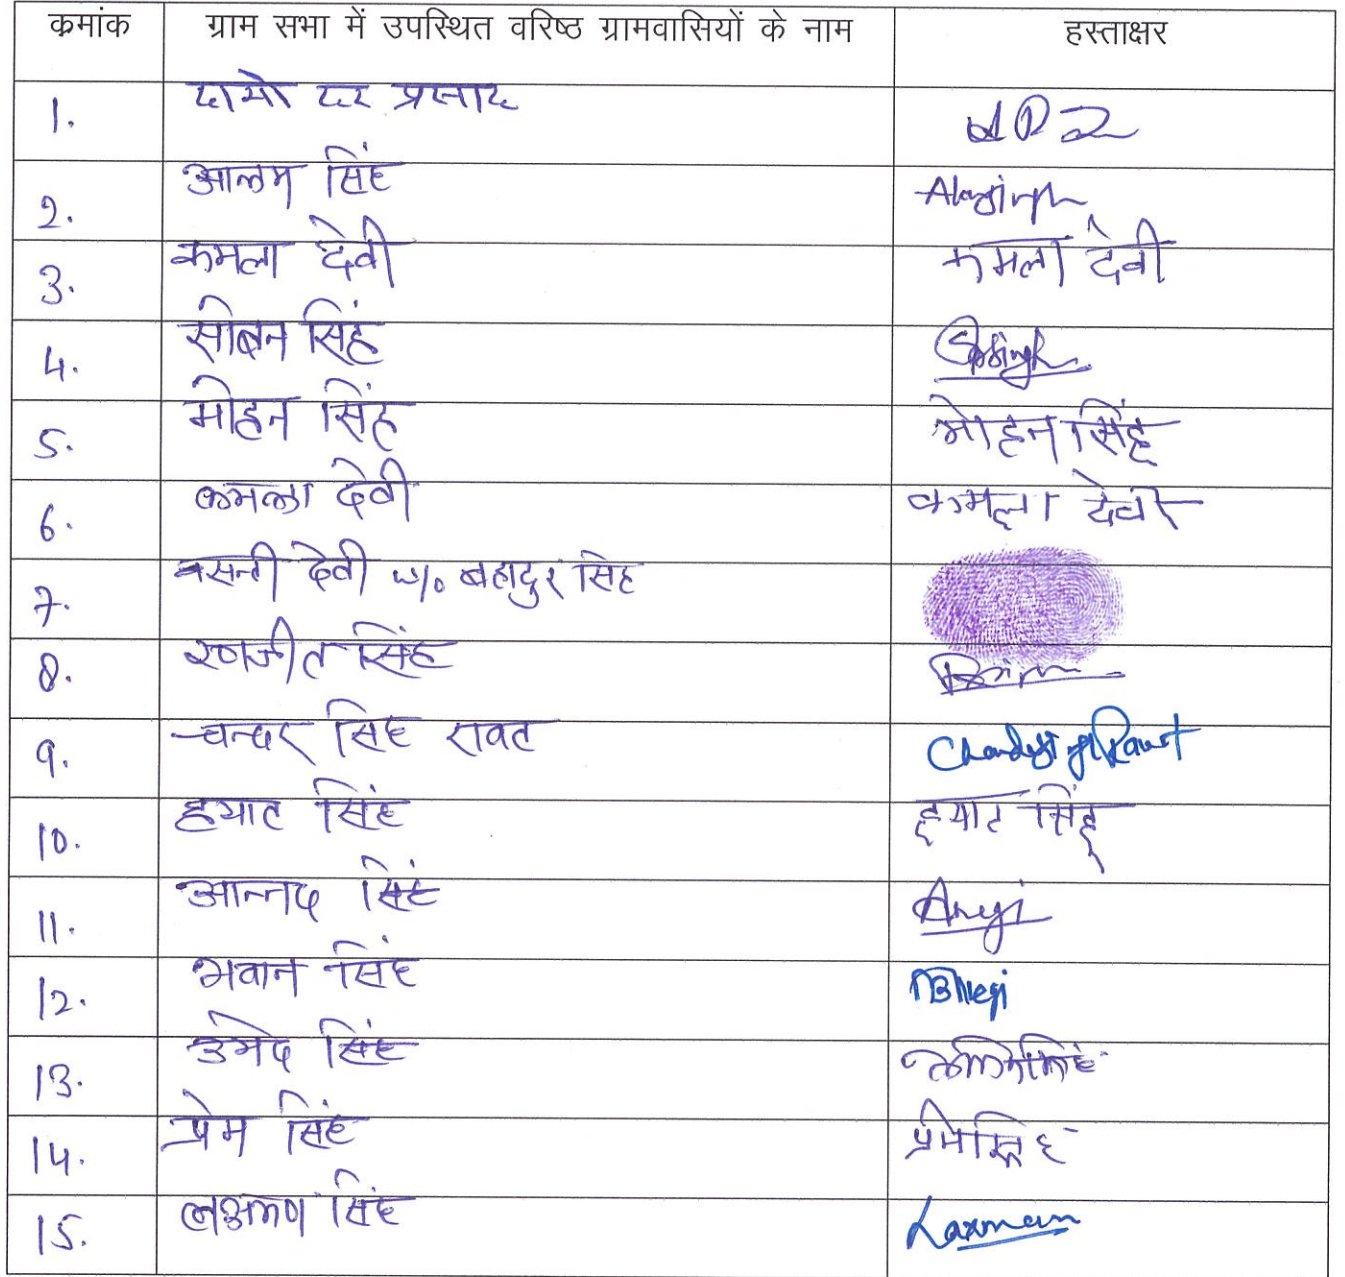 क्रमांक ग्राम सभा में उपस्थित वरिष्ठ ग्रामवासियों के नाम हस्ताक्षर
1. दामो दर प्रसाद
2. आलम सिंह
3. कमला देवी कमला देवी
4. सोबन सिंह
5. मोहन सिंह मोहन सिंह
6. कमला देवी कमला देवी
7. बसन्ती देवी w/o बहादुर सिंह
8. रणजीत सिंह
9. चन्दर सिंह रावत
10. हयात सिंह हयात सिंह
11. आन्नद सिंह
12. भवान सिंह BNegi
13. उमेद सिंह
14. प्रेम सिंह
15. लक्ष्मण सिंह Laxman